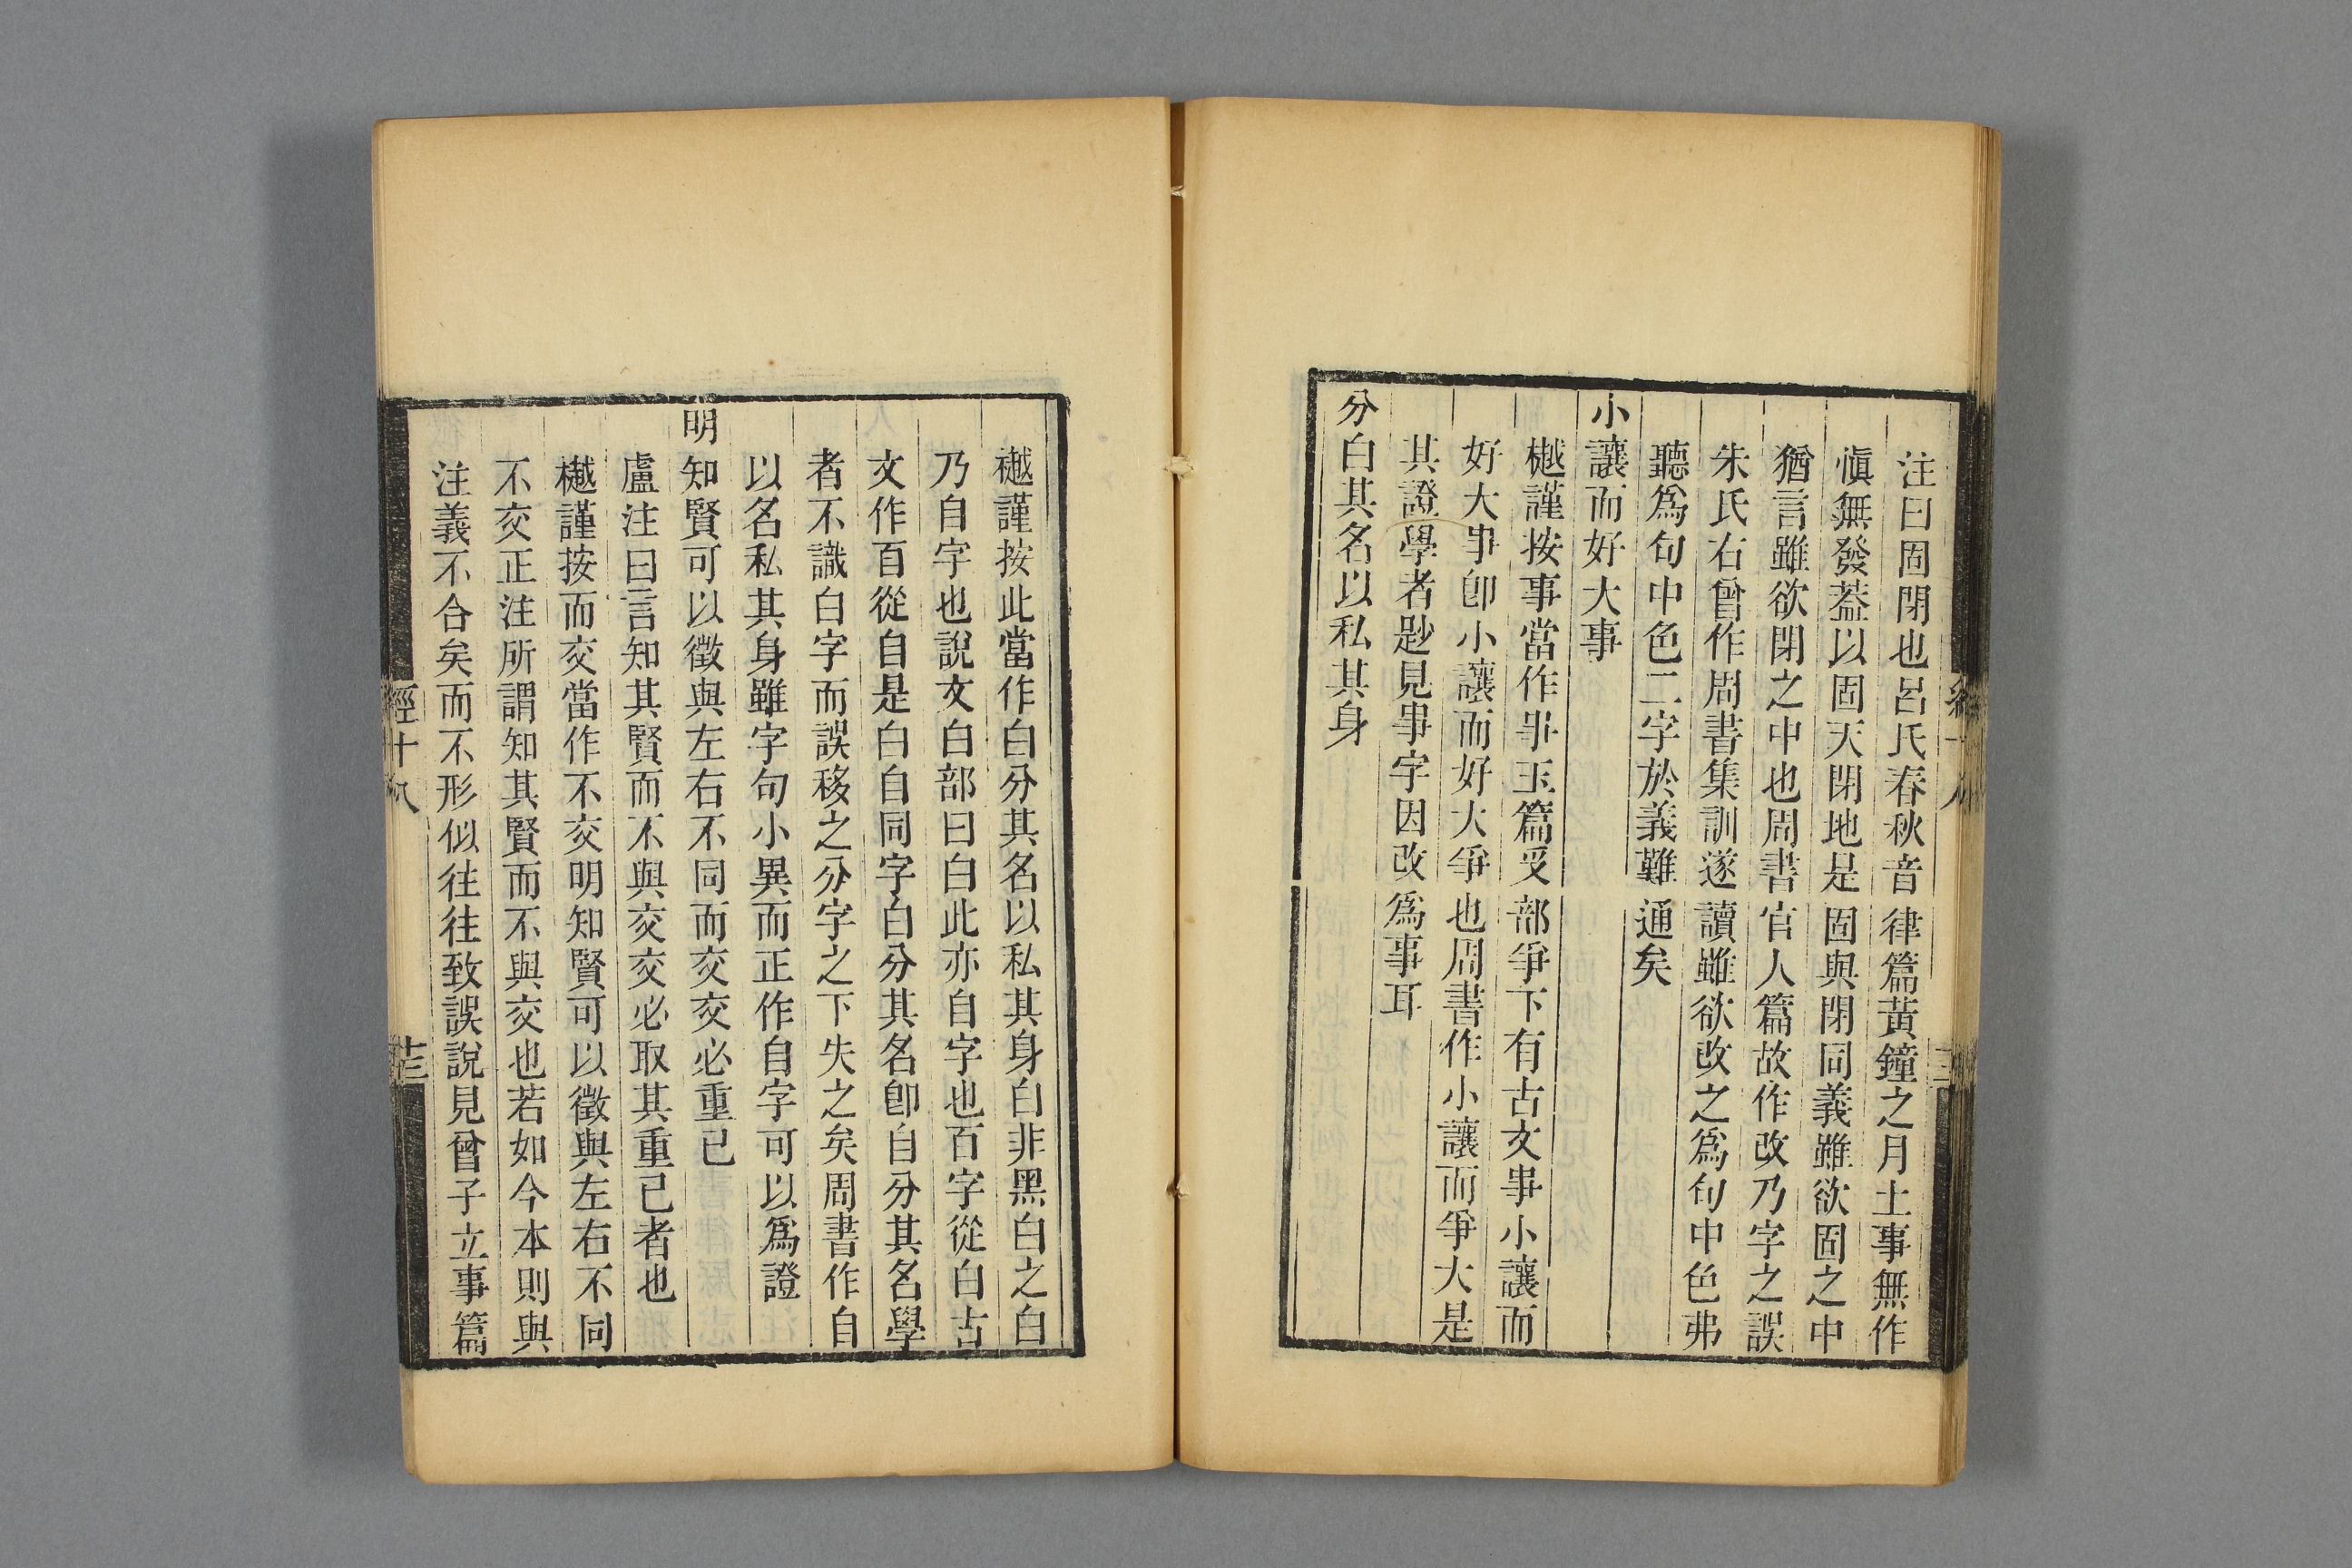 注曰固閉也呂氏春秋音律篇黃鐘之月土事無作
愼無發葢以固天閉地是固與閉同義雖欲固之中
猶言雖欲閉之中也周書官人篇故作改乃字之誤
朱氏右曾作周書集訓遂讀雖欲改之爲句中色弗
聽爲句中色二字於義難通矣
小讓而好大事
樾謹按事當作𠭏玉篇𠬪部爭下有古文𠭏小讓而
好大𠭏卽小讓而好大爭也周書作小讓而爭大是
其證學者尟見𠭏字因改爲事耳
分白其名以私其身
樾謹按此當作白分其名以私其身白非黑白之白
乃自字也說文白部曰白此亦自字也百字從白古
文作百從自是白自同字白分其名卽自分其名學
者不識白字而誤移之分字之下失之矣周書作自
以名私其身雖字句小異而正作自字可以爲證
明知賢可以徵與左右不同而交交必重己
盧注曰言知其賢而不與交交必取其重己者也
樾謹按而交當作不交明知賢可以徵與左右不同
不交正注所謂知其賢而不與交也若如今本則與
注義不合矣而不形似往往致誤說見曾子立事篇
經十八
十三